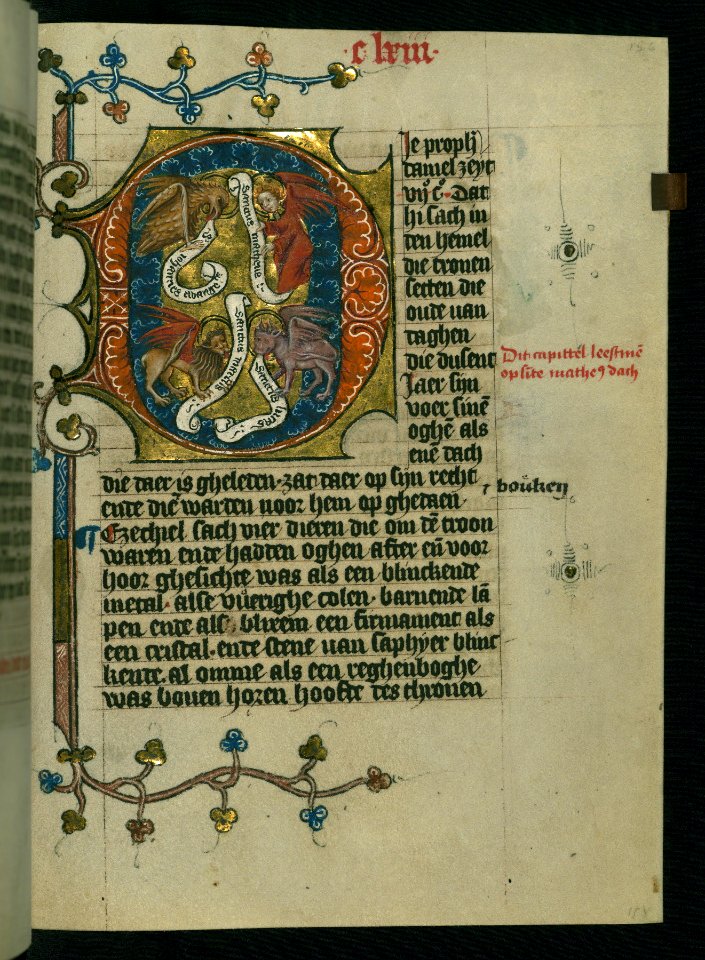 c lxiii
156
Ie prophē
daniel zeyt
vijᵒ cᵒ Dat
hi sach in
den hemel
die tronen
setten die
oude uan
daghen
die dusent
Jaer sijn
voer sinē
oghē als
ene dach
die daer is gheleden · zat daer op sijn recht
ende diē warden uoor hem op ghedaen ·
Ezechiel sach vier dieren die om dē troon
waren ende hadden oghen after eñ voor
hoor ghesichte was als een blinckende
metal · alse vüerighe colen · barnende lā
pen ende als blixem een firmament als
een cristal · ende stene uan saphÿer blinc
kende · al omme als een reghenboghe
was bouen horen hoofde des chronen
Sanctus matheus
Johannes ewange
Sanctus marcus
Sanctus lucas
Dit capittel leestmē
op sīte matheꝰ dach
bouken